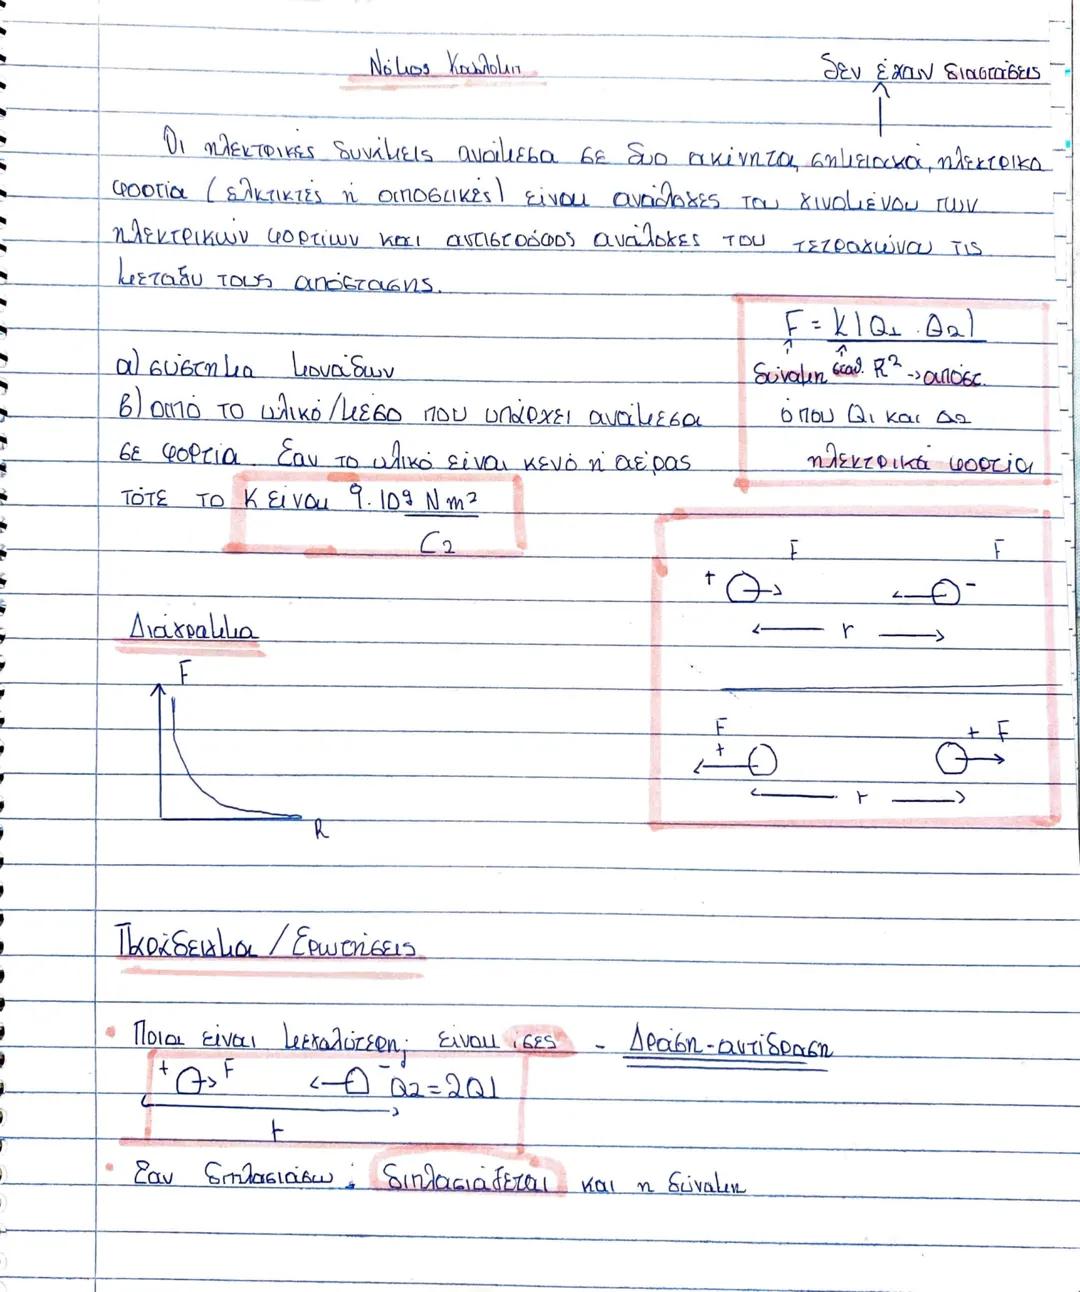 Νόμος Κουλόμπ
δεν έχουν διαστάσεις
Οι ηλεκτρικές δυνάμεις ανάμεσα σε δυο ακίνητα, σημειακά, ηλεκτρικά
φορτία (ελκτικές ή αποστικές) είναι ανάλογες του γινομένου των
ηλεκτρικών φορτίων και αντιστρόφος ανάλογες του τετραγώνου τις
μεταξυ τους απόστασης.
F = K|Q1 . Q2|
δύναμη σταθ. R² → απόσ.
όπου Q1 και Q2
ηλεκτρικά φορτία
α) σύστημα μονάδων
β) από το υλικό/μέσο που υπάρχει ανάμεσα
σε φορτία. Εαν το υλικό είναι κενό ή αέρας
τότε το K είναι 9.10９ N m²
C2
F F
+ -
r
F + + F
r
Διάγραμμα
F
R
Παράδειγμα / Ερωτήσεις
• Ποια είναι μεγαλύτερη; είναι ίσες - Δράση-αντίδραση
+ F - Q2 = 2Q1
r
• Εαν διπλασιάσω; διπλασιάζεται και η δύναμη